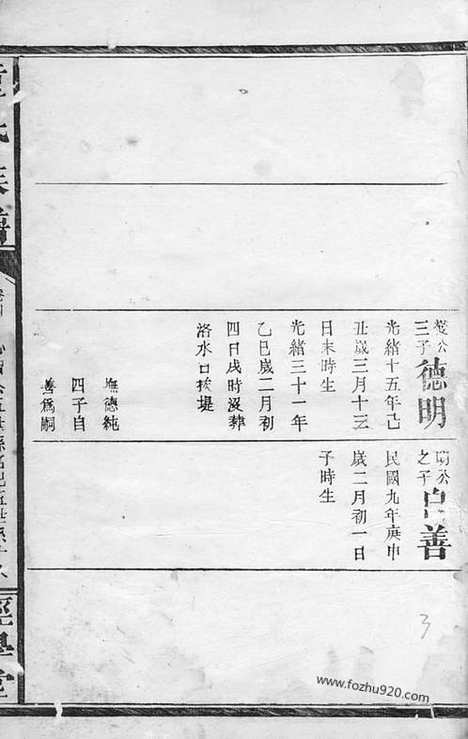 三子德明
光緒十五年己
丑歲三月十三
日未時生
光緒三十一年
乙巳歲二月初
四日戌時沒葬
洛水口
撫德純
四子自
善爲嗣
明公
之子自善
民國九年庚申
歲二月初一日
子時生
氏族譜
經學堂
3
www.fozhu920.com